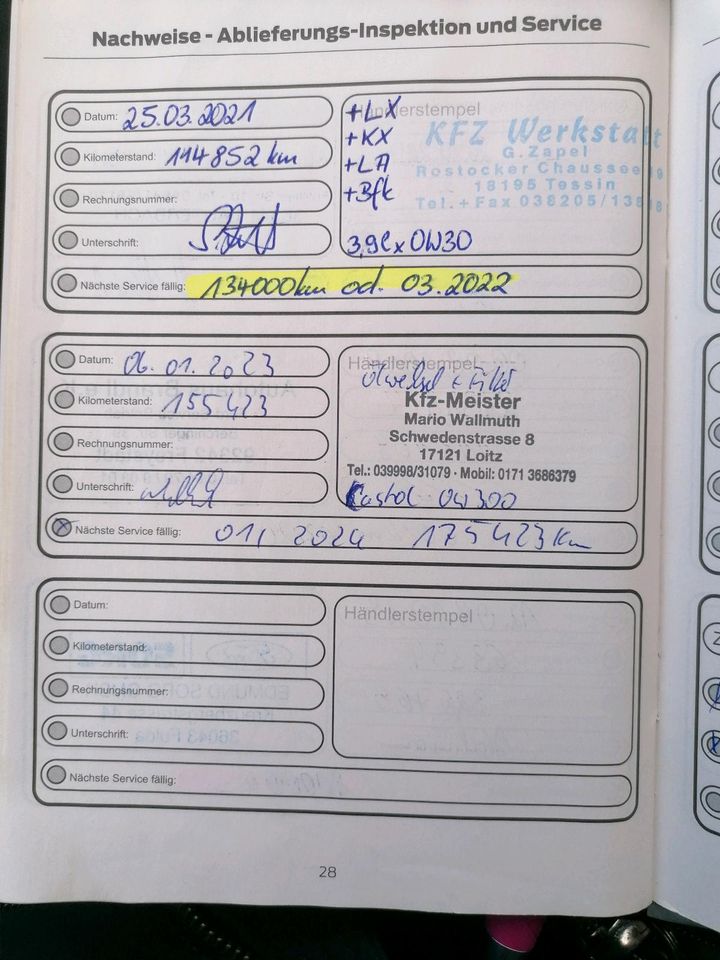 Nachweise - Ablieferungs-Inspektion und Service
Datum: 25.03.2021
Kilometerstand: 114852 km
Rechnungsnummer:
Unterschrift:
Nächste Service fällig: 134000km od. 03.2022
Händlerstempel
+LX
+KX
+LA
+Bfk
3,9l x 0W30
KFZ Werkstatt
G. Zapel
Rostocker Chaussee
18195 Tessin
Tel. + Fax 038205/
Datum: 06.01.2023
Kilometerstand: 155423
Rechnungsnummer:
Unterschrift:
Nächste Service fällig: 01, 2024 175423 Km
Händlerstempel
Ölwechsel + Filter
Kfz-Meister
Mario Wallmuth
Schwedenstrasse 8
17121 Loitz
Tel.: 039998/31079 · Mobil: 0171 3686379
Castrol 0W300
Datum:
Kilometerstand:
Rechnungsnummer:
Unterschrift:
Nächste Service fällig:
Händlerstempel
28